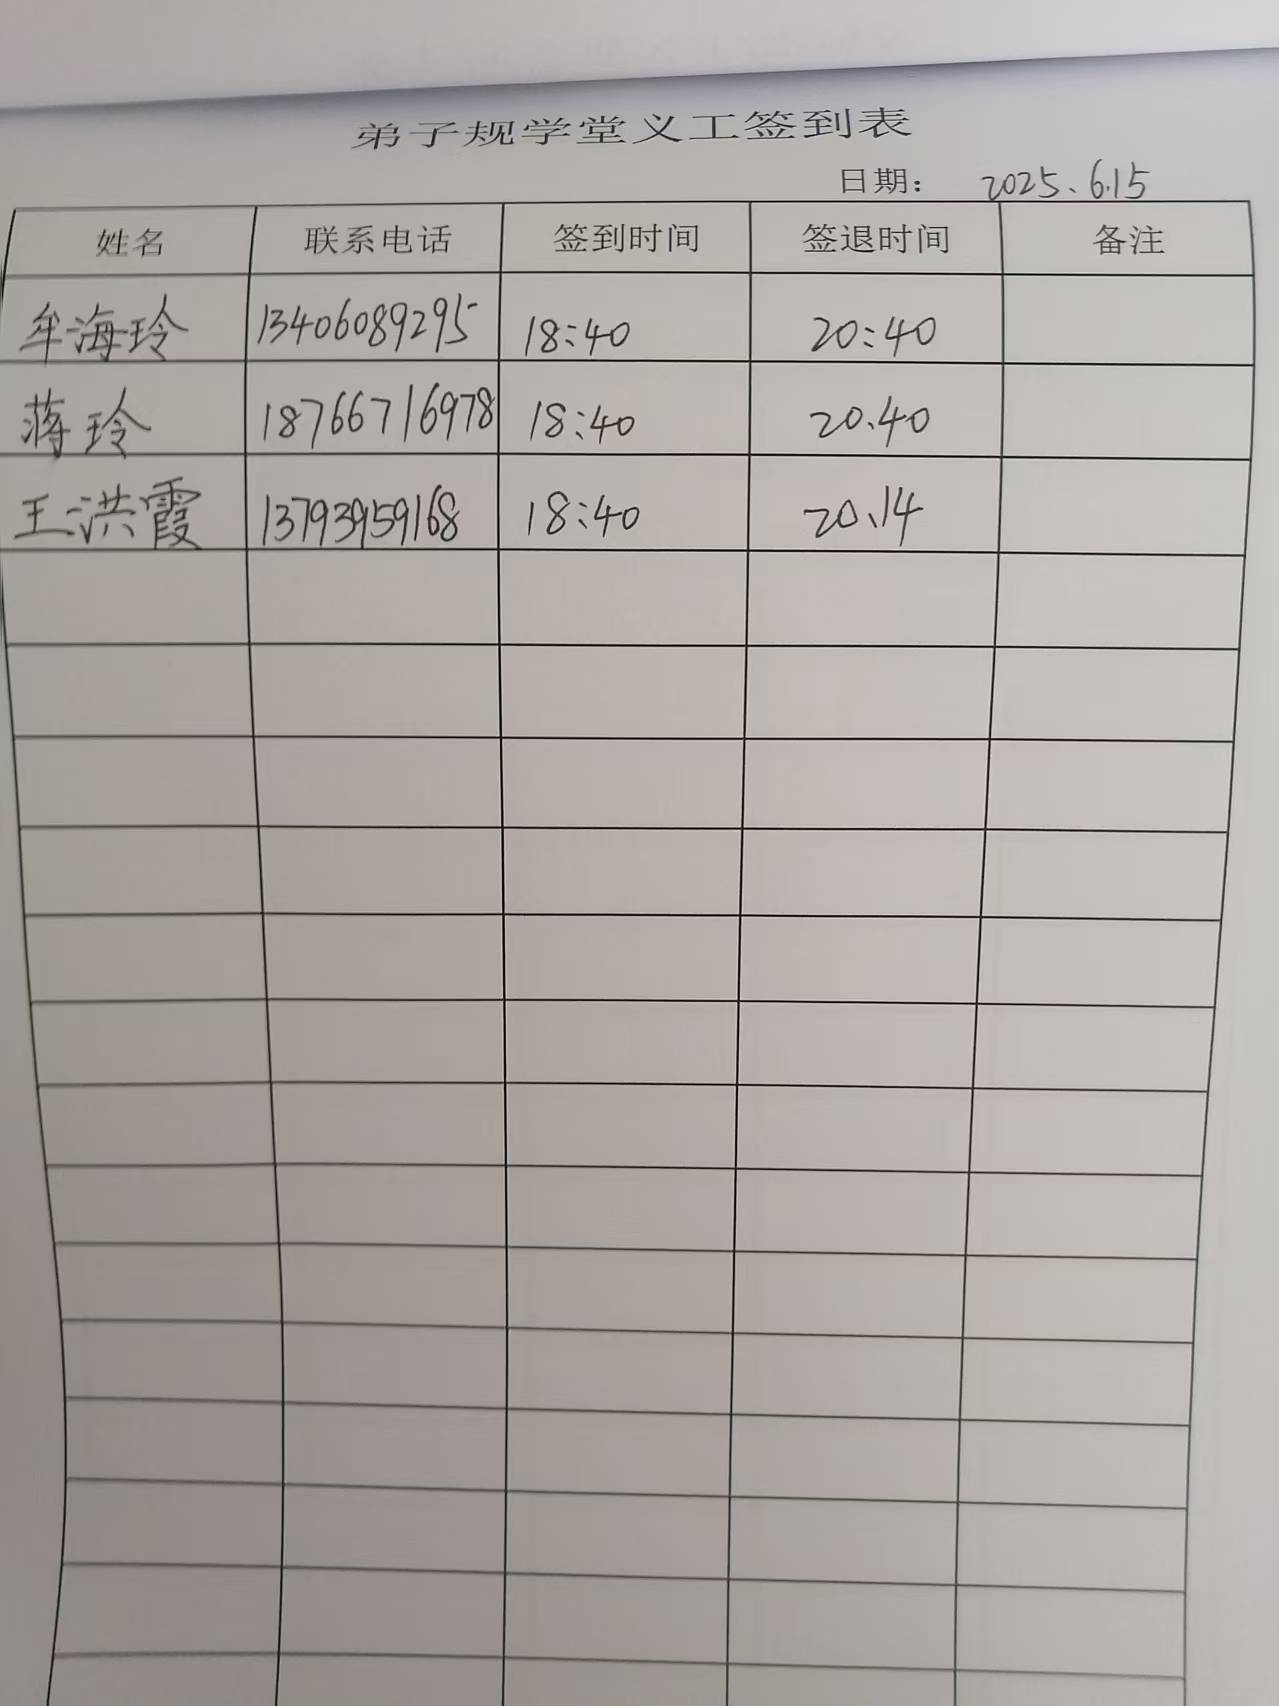 弟子规学堂义工签到表
日期： 2025.6.15
姓名 联系电话 签到时间 签退时间 备注
牟海玲 13406089295 18:40 20:40
蒋玲 18766716978 18:40 20.40
王洪霞 13793959168 18:40 20.14